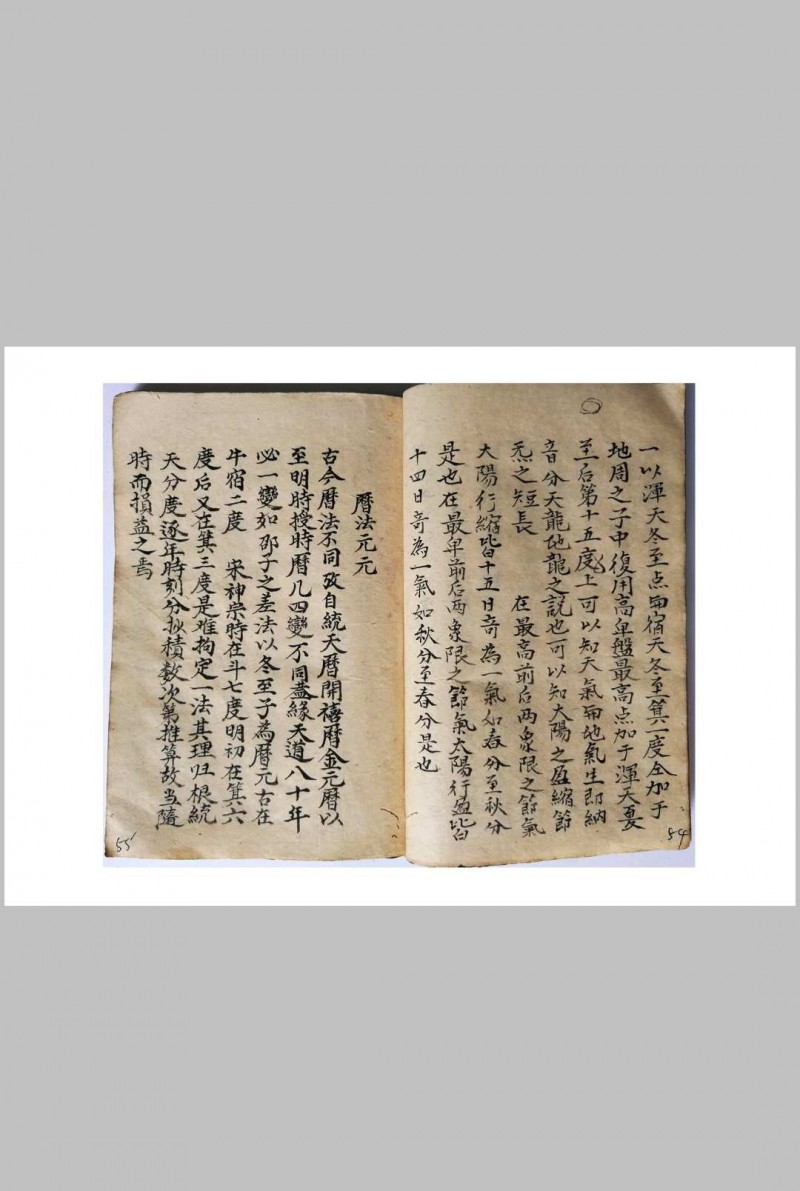 一以渾天冬至点向宿天冬至箕一度全加于
地周之子中復用高卑盤最高点加于渾天夏
至后第十五度上可以知天氣向地氣生即納
音分天龍地龍之說也可以知太陽之盈縮節
炁之短長 在最高前后两象限之節氣
大陽行縮皆十五日竒為一氣如春分至秋分
是也在最卑前后两象限之節氣太陽行盈皆
十四日竒為一氣如秋分至春分是也
54
曆法元元
古今曆法不同攷自統天曆開禧曆金元曆以
至明時授時曆几四變不同蓋緣天道八十年
必一變如邵子之差法以冬至子為曆元古在
牛宿二度 宋神宗時在斗七度明初在箕六
度后又在箕三度是难拘定一法其理归根統
天分度逐年時刻分秒積数次第推算故当隨
時而損益之焉
55